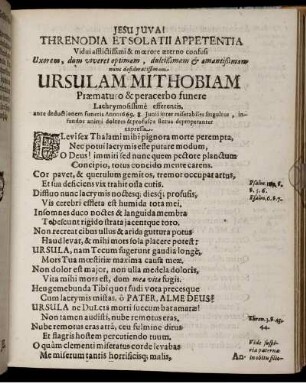 JESU JUVA!
THRENODIA ET SOLATII APPETENTIA
Vidui afflictissimi & mœrore æterno confusi
Uxorem, dum viveret optimam, dulcissimam & amantissimam
nunc desideratissimam,
URSULAM MITHOBIAM
Præmaturo & peracerbo funere
Lachrymosissimè efferentis,
ante deductionem funeris Anno 1669. Junii inter miserabiles singultus,
animi dolores & profusos fletus depropetanter
expressa.
Levi sex Thalami mihi pignora morte perempta,
Nec potui lacrymis esse putare modum,
O Deus! immiti sed nunc pectore planctum
Concipio, totus concido mente carens.
Cor pavet, & querulum gemitos, tremor occupat artus,
Et sua deficiens vix trahit ossa cutis.
Diffluo nunc lacrymis noctesq; diesq; profusis,
Vis cerebri effleta est humida tota mei,
Insomnes duco noctes & languida membra
Tabescunt rigido strata jacentque toro.
Non recreat cibus ullus & aridu guttura potus
Haud levat, & mihi mors sola placere potest:
URSULA, nam Tecum fugerunt gaudia longè,
Mors Tua mœstitiæ maxima causa meæ.
Non dolor est major, non ulla medela doloris,
Vita mihi mors est, dum mea vita fugit.
Heu gemebunda Tibi quot fudi vota precesque
Cum lacrymis mistas. ô PATER, ALME DEUS!
URSULA ne Dulcis morti succumbat amatæ!
Non tamen audisti, nube remotus eras,
Nube remotus eras atrâ, ceu fulmine dirus
Et flagris hostem percutiendo tuum.
O quàm clementi misceratus corde levabas
Me miserum tantis horrificisq; malis,
An
Psalm.
8. 5. 6.
Psalm. 6. 8. 7.
Thren. 3. 8. 43.
44.
Vide